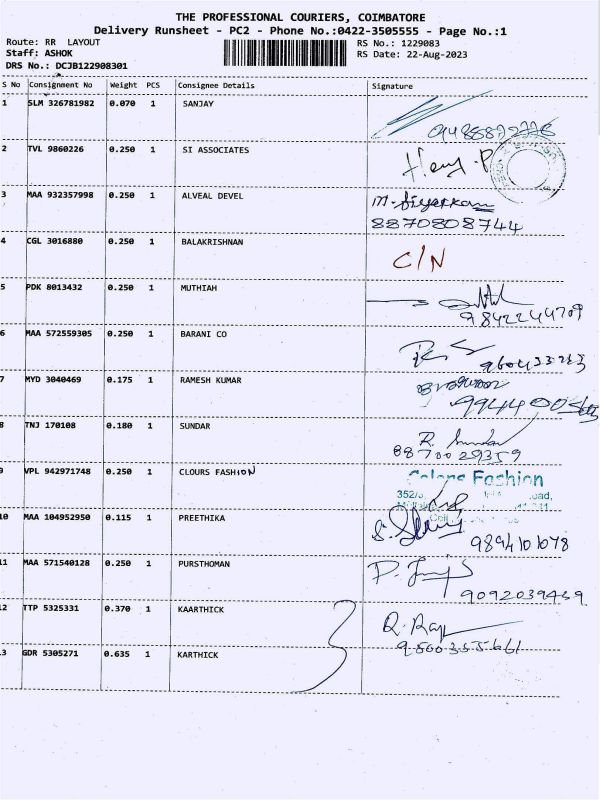 THE PROFESSIONAL COURIERS, COIMBATORE
Delivery Runsheet - PC2 - Phone No.:0422-3505555 - Page No.:1
Route: RR LAYOUT
RS No.: 1229083
Staff: ASHOK
RS Date: 22-Aug-2023
DRS No.: DCJB122908301
S No Consignment No Weight PCS Consignee Details Signature
1 SLM 326781982 0.070 1 SANJAY
2 TVL 9860226 0.250 1 SI ASSOCIATES
3 MAA 932357998 0.250 1 ALVEAL DEVEL
8870808744
4 CGL 3016880 0.250 1 BALAKRISHNAN C/N
5 PDK 8013432 0.250 1 MUTHIAH
9842244709
6 MAA 572559305 0.250 1 BARANI CO
7 MYD 3040469 0.175 1 RAMESH KUMAR
8 TNJ 170108 0.180 1 SUNDAR R. Sundar
8870029359
9 VPL 942971748 0.250 1 CLOURS FASHION Colors Fashion
10 MAA 104952950 0.115 1 PREETHIKA
9894101078
11 MAA 571540128 0.250 1 PURSTHOMAN
9092039439
12 TTP 5325331 0.370 1 KAARTHICK
13 GDR 5305271 0.635 1 KARTHICK